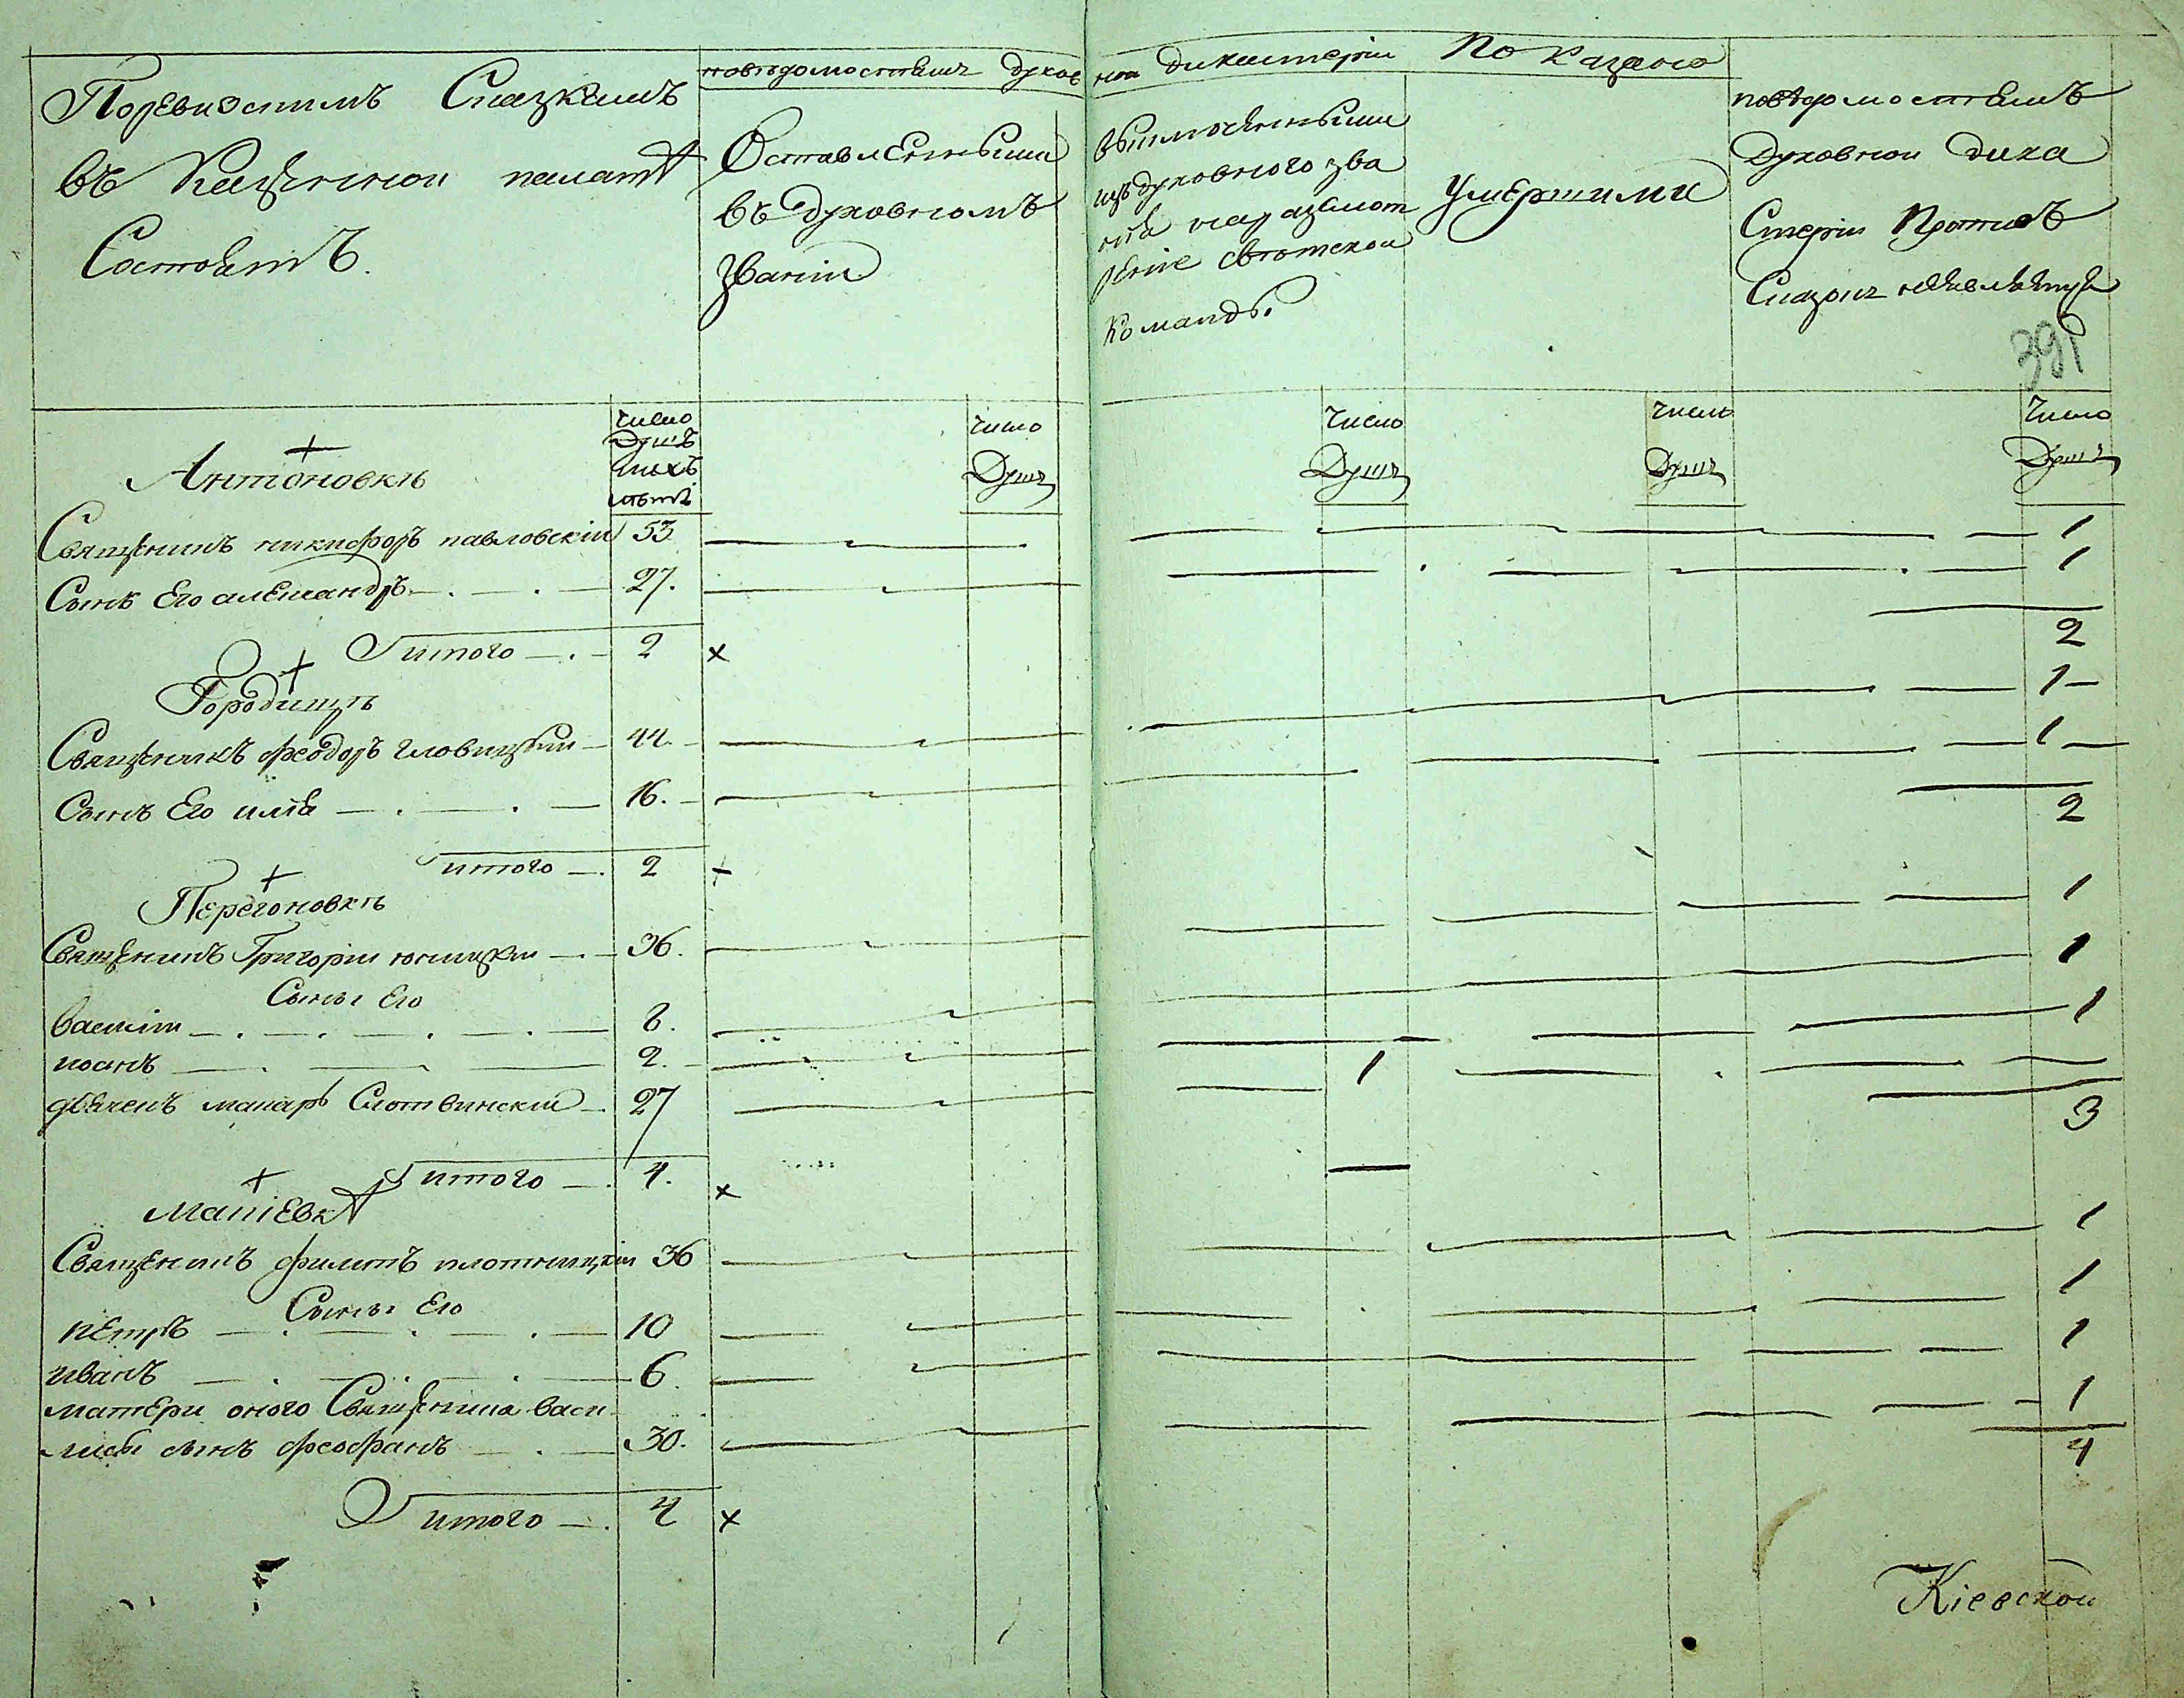 Поревизскимъ Сказкамъ
въ Казенной палатѣ
Состоитъ.
повѣдомостямъ духов ной дикастеріи Показано
Оставленными
въ духовномъ
Званіи
выключенными
изъ духовного зва
нія на разсмот
реніе свѣтской
команды.
Умершими
повѣдомостямъ
Духовной дика
Стеріи Противъ
Сказокъ
391
число
Душъ
ихъ
лѣтъ
число
Душъ
число
Душъ
число
Душъ
число
Душъ
Антоновкѣ
Священникъ никифоръ павловскій 53 1
Сынъ Его александръ 27. 1
итого 2 х 2
Городищѣ
Священникъ феодоръ 44 1
Сынъ Его илія 16. 1
итого 2 х 2
Перегоновкѣ
Священникъ Григорій 36. 1
Сыны Его
василій 8. 1
иоанъ 2. 1
дьячекъ макаръ Слотвинскій 27 1
итого 4. х 3
Матіевкѣ
Священникъ филипъ плотницкій 36 1
Сыны Его
петръ 10 1
иванъ 6. 1
матери оного Священника васи
сынъ феофанъ 30. 1
итого 4 х 4
Кіевской